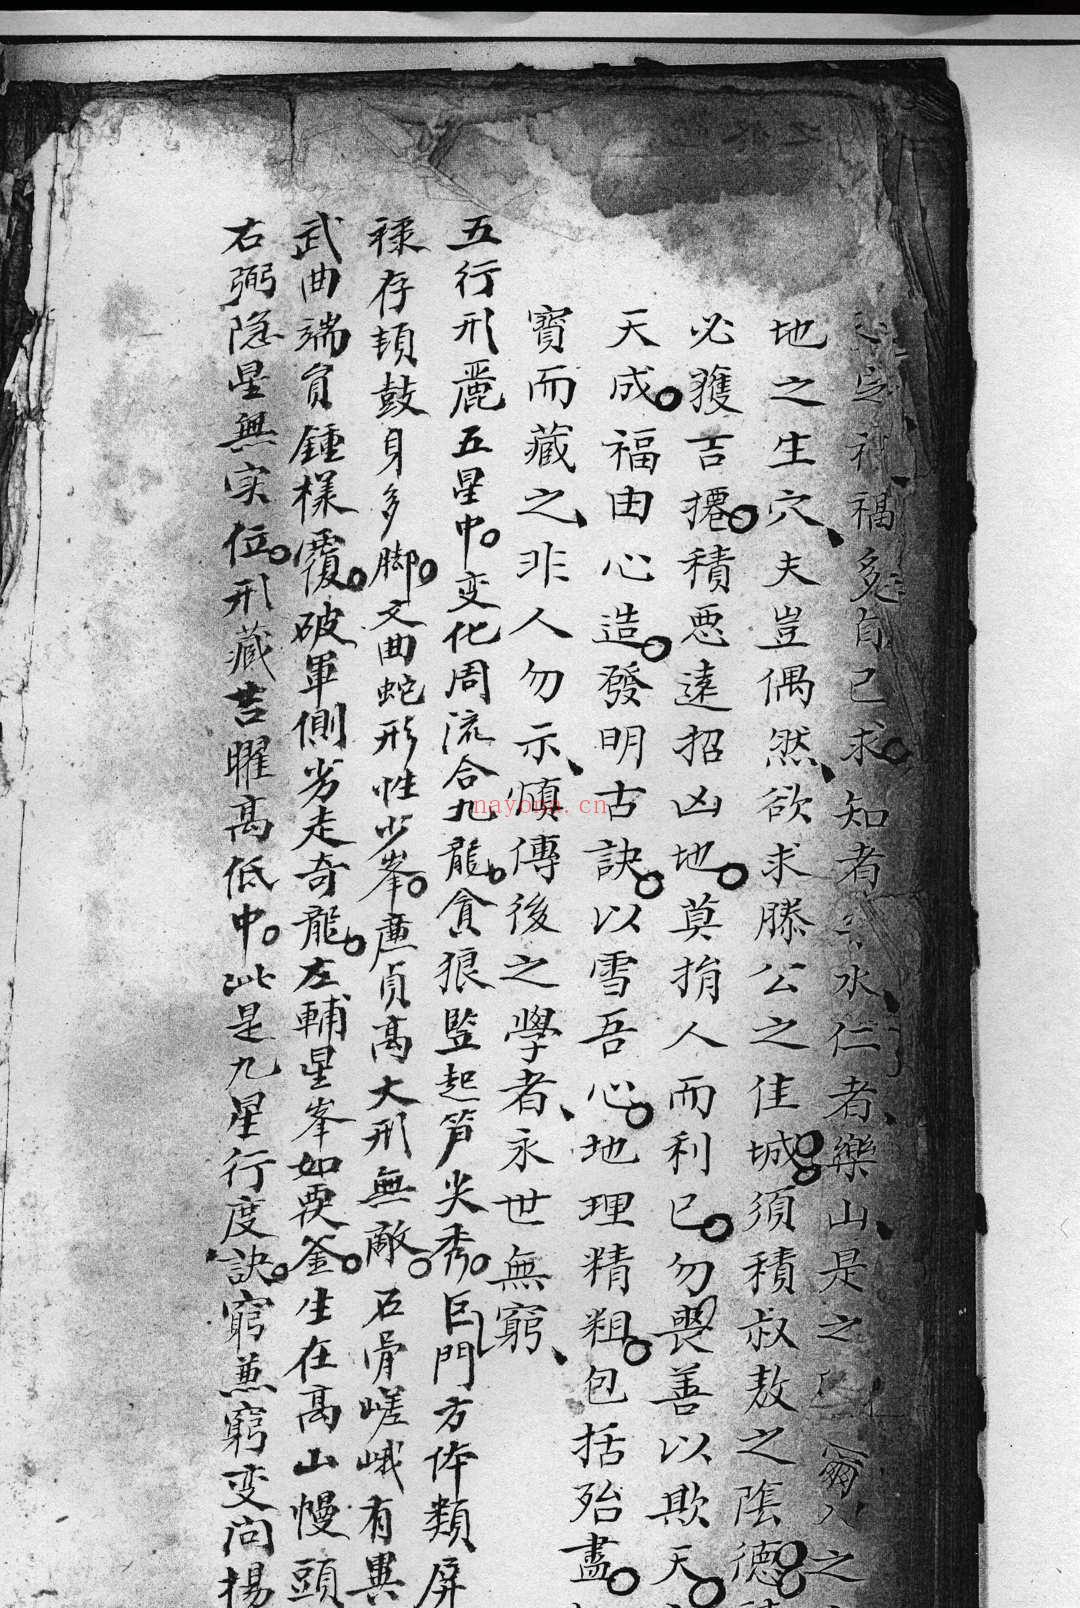 福自己求知者水仁者樂山是之之
地之生穴夫豈偶然欲求滕公之佳城須積叔敖之陰德
必獲吉遷積悪遠招凶地莫損人而利已勿畏善以欺天
天成福由心造發明古訣以雪吾心地理精粗包括殆盡
寳而藏之非人勿示願傳後之學者永世無窮
五行形麗五星中变化周流合九龍貪狼竪起笋尖秀巨門方体類屏
祿存頓鼓身多脚文曲蛇形性少峯廉貞高大形無敵石骨嵯峨有異
武曲端負鍾樣覆破軍側劣走奇龍左輔星峯如覆釜生在高山幔頭
右弼隐星無实位形藏吉曜高低中此是九星行度訣窮兼窮变问楊
nayona.cn